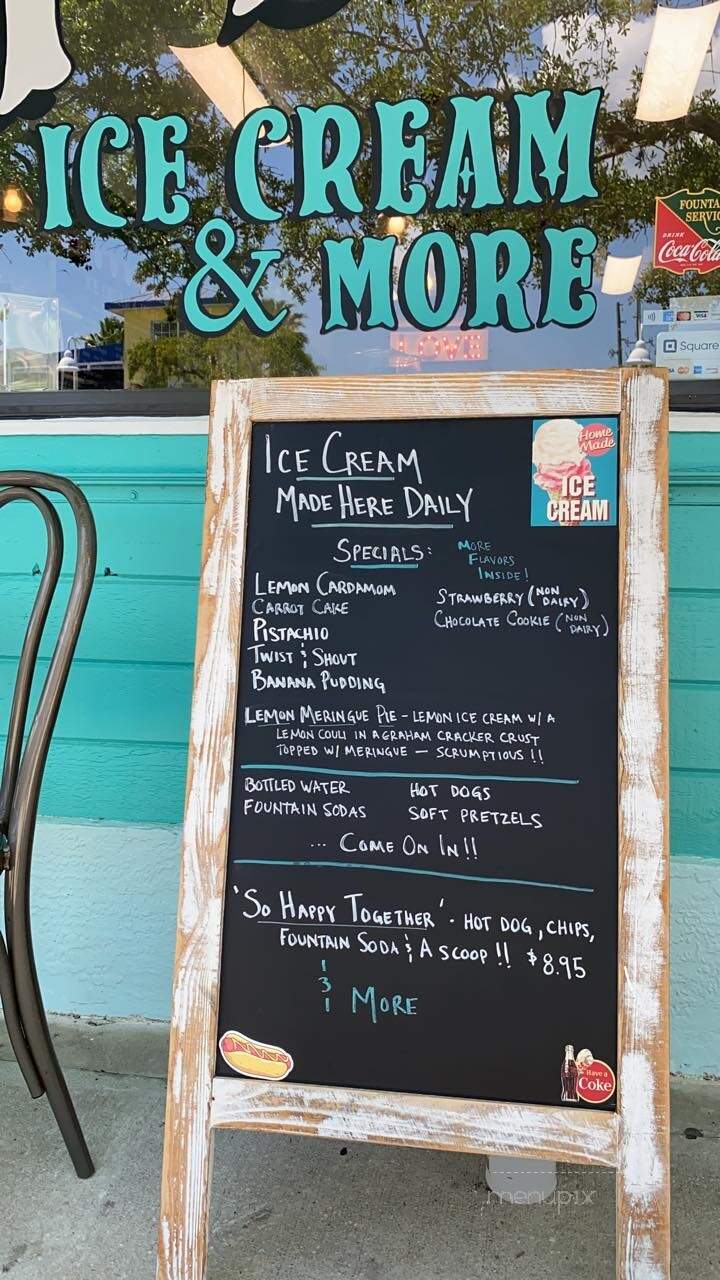 ICE CREAM
& MORE
FOUNTA
SERVI
DRINK
Coca-Cola
LOVE
Square
Home
Made
ICE
CREAM
ICE CREAM
MADE HERE DAILY
SPECIALS:
MORE
FLAVORS
INSIDE!
LEMON CARDAMOM
CARROT CAKE
PISTACHIO
TWIST & SHOUT
BANANA PUDDING
STRAWBERRY (NON DAIRY)
CHOCOLATE COOKIE (NON DAIRY)
LEMON MERINGUE PIE - LEMON ICE CREAM W/ A
LEMON COULI IN A GRAHAM CRACKER CRUST
TOPPED W/ MERINGUE — SCRUMPTIOUS !!
BOTTLED WATER HOT DOGS
FOUNTAIN SODAS SOFT PRETZELS
... COME ON IN!!
'SO HAPPY TOGETHER' - HOT DOG, CHIPS,
FOUNTAIN SODA & A SCOOP !! $8.95
& MORE
Have a
Coke
menupix